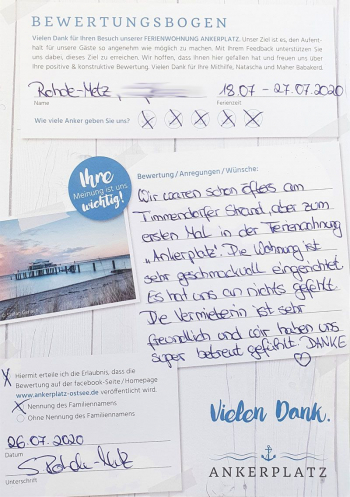 BEWERTUNGSBOGEN
Vielen Dank für Ihren Besuch unserer FERIENWOHNUNG ANKERPLATZ. Unser Ziel ist es, den Aufent-
halt für unsere Gäste so angenehm wie möglich zu machen. Mit Ihrem Feedback unterstützen Sie
uns dabei, dieses Ziel zu erreichen. Wir hoffen, dass Ihnen hier gefallen hat und freuen uns über
Ihre positive & konstruktive Bewertung. Vielen Dank für Ihre Mithilfe, Natascha und Maher Babakerd.
Rohde-Metz, 18.07 - 27.07.2020
Name Ferienzeit
Wie viele Anker geben Sie uns? X X X X X
Ihre
Meinung ist uns
wichtig!
Bewertung / Anregungen / Wünsche:
Wir waren schon öfters am
Timmendorfer Strand, aber zum
ersten Mal in der Ferienwohnung
„Ankerplatz". Die Wohnung ist
sehr geschmackvoll eingerichtet.
Es hat uns an nichts gefehlt.
Die Vermieterin ist sehr
freundlich und wir haben uns
super betreut gefühlt. DANKE
♡
X Hiermit erteile ich die Erlaubnis, dass die
Bewertung auf der facebook-Seite / Homepage
www.ankerplatz-ostsee.de veröffentlicht wird.
X Nennung des Familiennamens
Ohne Nennung des Familiennamens
26.07.2020
Datum
S Rohde-Metz
Unterschrift
Vielen Dank.
ANKERPLATZ